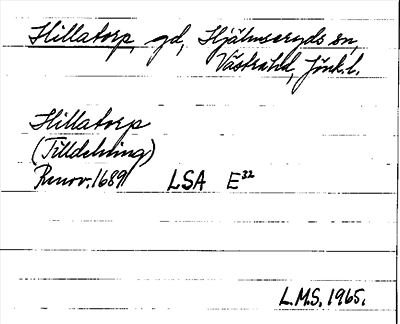 Hillatorp, gd, Hjälmseryds sn,
Västra hd, Jönk. l.
Hillatorp
(Tilldelning)
Renov. 1689 LSA E³²
L.M.S. 1965.